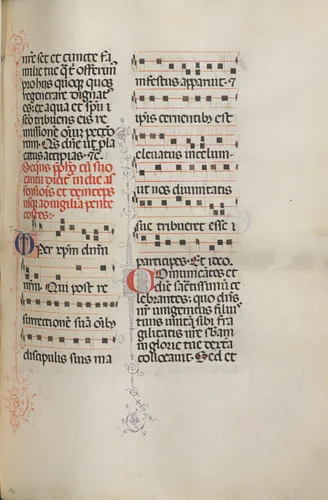 nr̄e set et cuncte fa
milie tue q̄ offerim̄
pro hiis quoq quos
regenerare dignat
es. ex aqua et sp̄u
sc̄o tribuens eis re
missionē oīm pecco
rum. Qs dn̄e ut pla
catus accipias. ⁊c̄.
Seq̄ns p̄fo cū suo
cantu dicit in die as
sensiois et deinceps
usq ad vigiliā pente
costes.
Per xp̄m dn̄m
nr̄m. Qui post re
surrectionē suā oīb
discipulis suis ma
nifestus apparuit. ⁊
ip̄is cernentib est
eleuatus in celum.
ut nos diuinitatis
sue tribueret esse
participes. Et ideo.
Comunicātes et
diē sacratissimū ce
lebrantes. quo dn̄s
nr̄ unigenitus filius
tuus unitā sibi fra
gilitatis nr̄e sbām
in glorie tue dextera
collocauit. Sed et